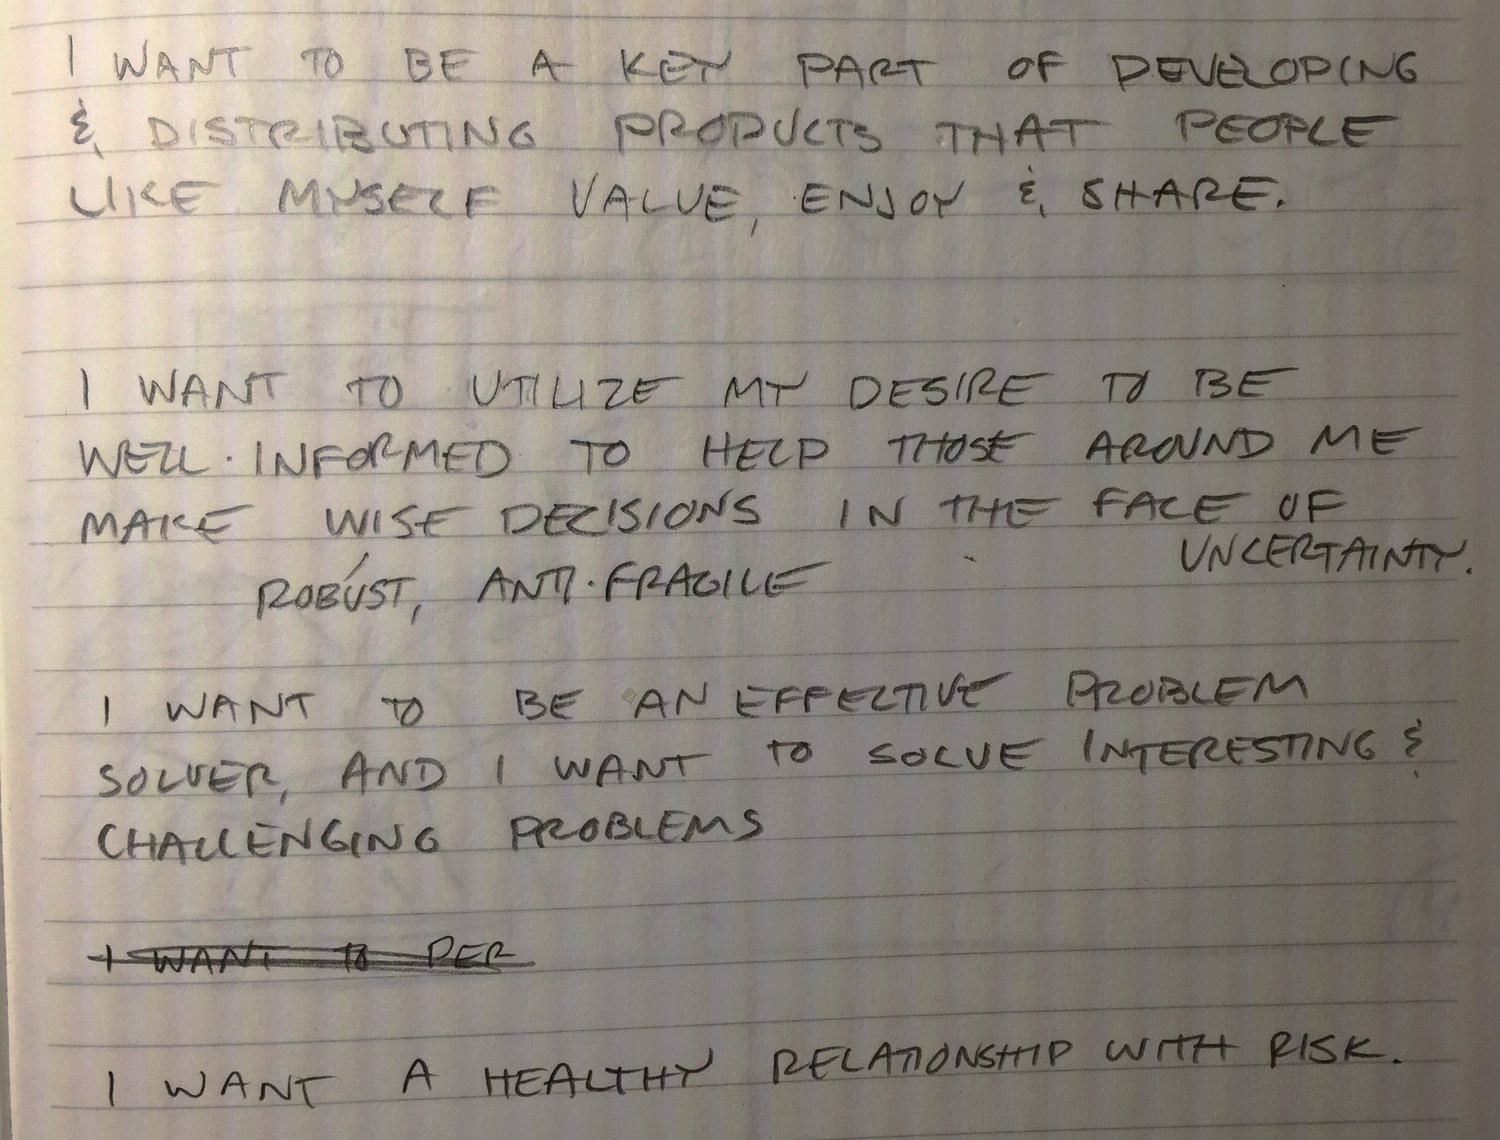 I WANT TO BE A KEY PART OF DEVELOPING
& DISTRIBUTING PRODUCTS THAT PEOPLE
LIKE MYSELF VALUE, ENJOY & SHARE.
I WANT TO UTILIZE MY DESIRE TO BE
WELL-INFORMED TO HELP THOSE AROUND ME
MAKE WISE DECISIONS IN THE FACE OF
UNCERTAINTY.
ROBUST, ANTI-FRAGILE
I WANT TO BE AN EFFECTIVE PROBLEM
SOLVER, AND I WANT TO SOLVE INTERESTING &
CHALLENGING PROBLEMS
I WANT TO PER
I WANT A HEALTHY RELATIONSHIP WITH RISK.